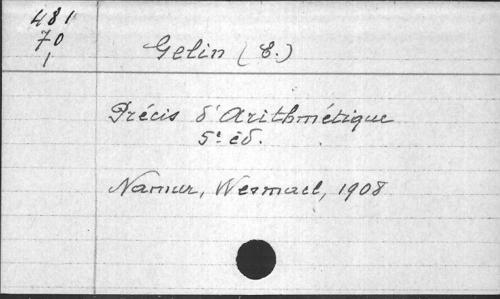 481
70
1
Gelin (E.)
Précis d'Arithmétique
5e éd.
Namur, Wesmael, 1908